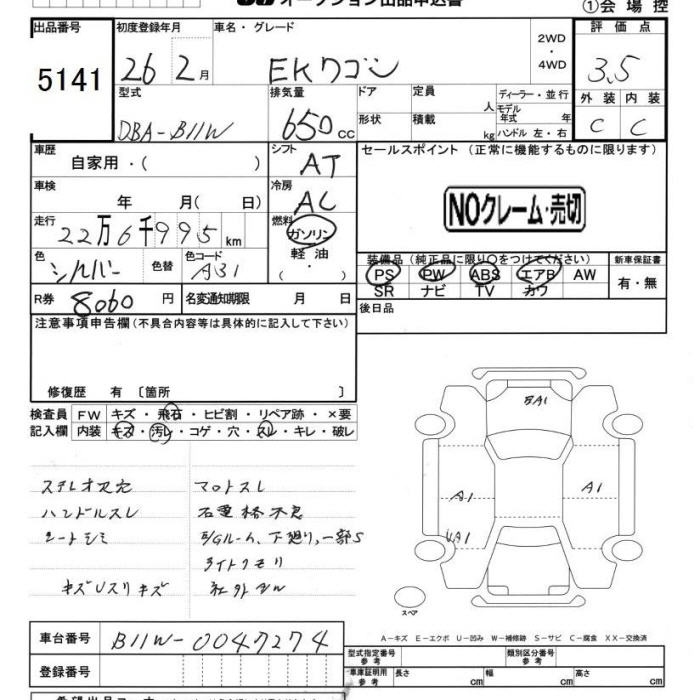 オークション出品申込書
①会場控
出品番号
5141
初度登録年月
26 2月
車名・グレード
EKワゴン
2WD
・
4WD
評価点
3.5
型式
DBA-B11W
排気量
650 cc
ドア
形状
定員
人
積載
kg
ディーラー・並行
モデル年式 年
ハンドル 左・右
外装
内装
C
C
車歴
自家用・( )
シフト
AT
セールスポイント (正常に機能するものに限ります)
車検
年 月( 日)
冷房
AC
NOクレーム・売切
走行
22万6千995km
燃料
ガソリン
軽油
・
色
シルバー
色替
色コード
A31
装備品 (純正品に限り○をつけてください)
新車保証書
PS PW ABS エアB AW
SR ナビ TV カワ
有・無
R券
8060円
名変通知期限 月 日
後日品
注意事項申告欄 (不具合内容等は具体的に記入して下さい)
修復歴 有 〔箇所 〕
検査員
記入欄
FW キズ・飛石・ヒビ割・リペア跡・×要
内装 キズ・汚レ・コゲ・穴・スレ・キレ・破レ
ハンドルスレ
シートシミ
E/Gルーム、下廻り、一部S
ライトクモリ
A1
A1
UA1
スペア
A-キズ E-エクボ U-凹み W-補修跡 S-サビ C-腐食 XX-交換済
車台番号
B11W-0047274
登録番号
型式指定番号
参考
類別区分番号
参考
車庫証明用
参考
長さ cm
幅 cm
高さ cm